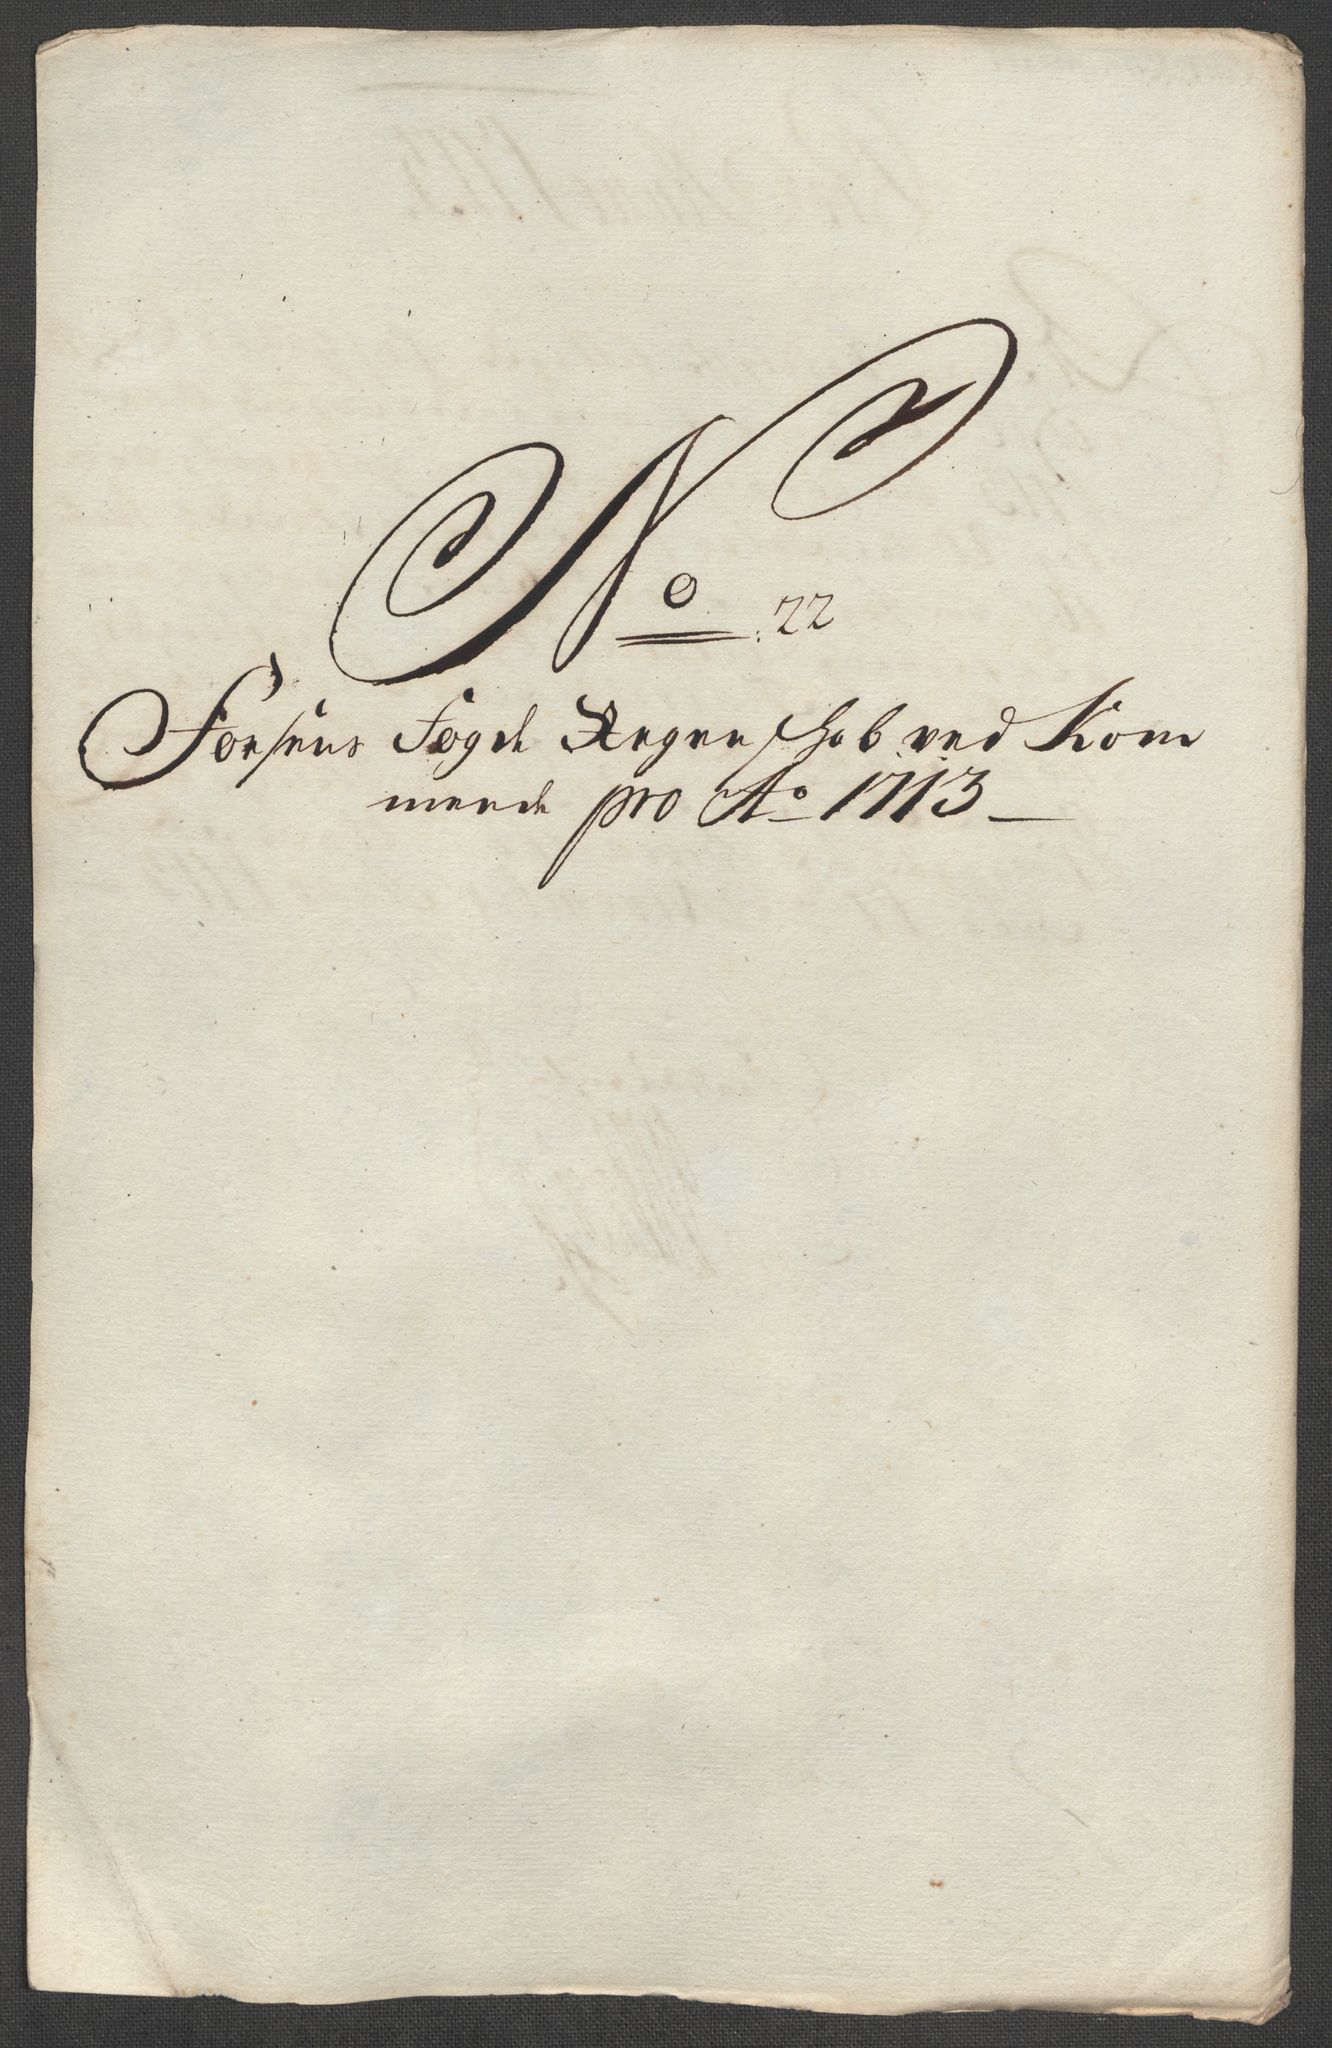 No: 22
Fosens Fogde Regenskab ved Kom
mende pro Ao 1713